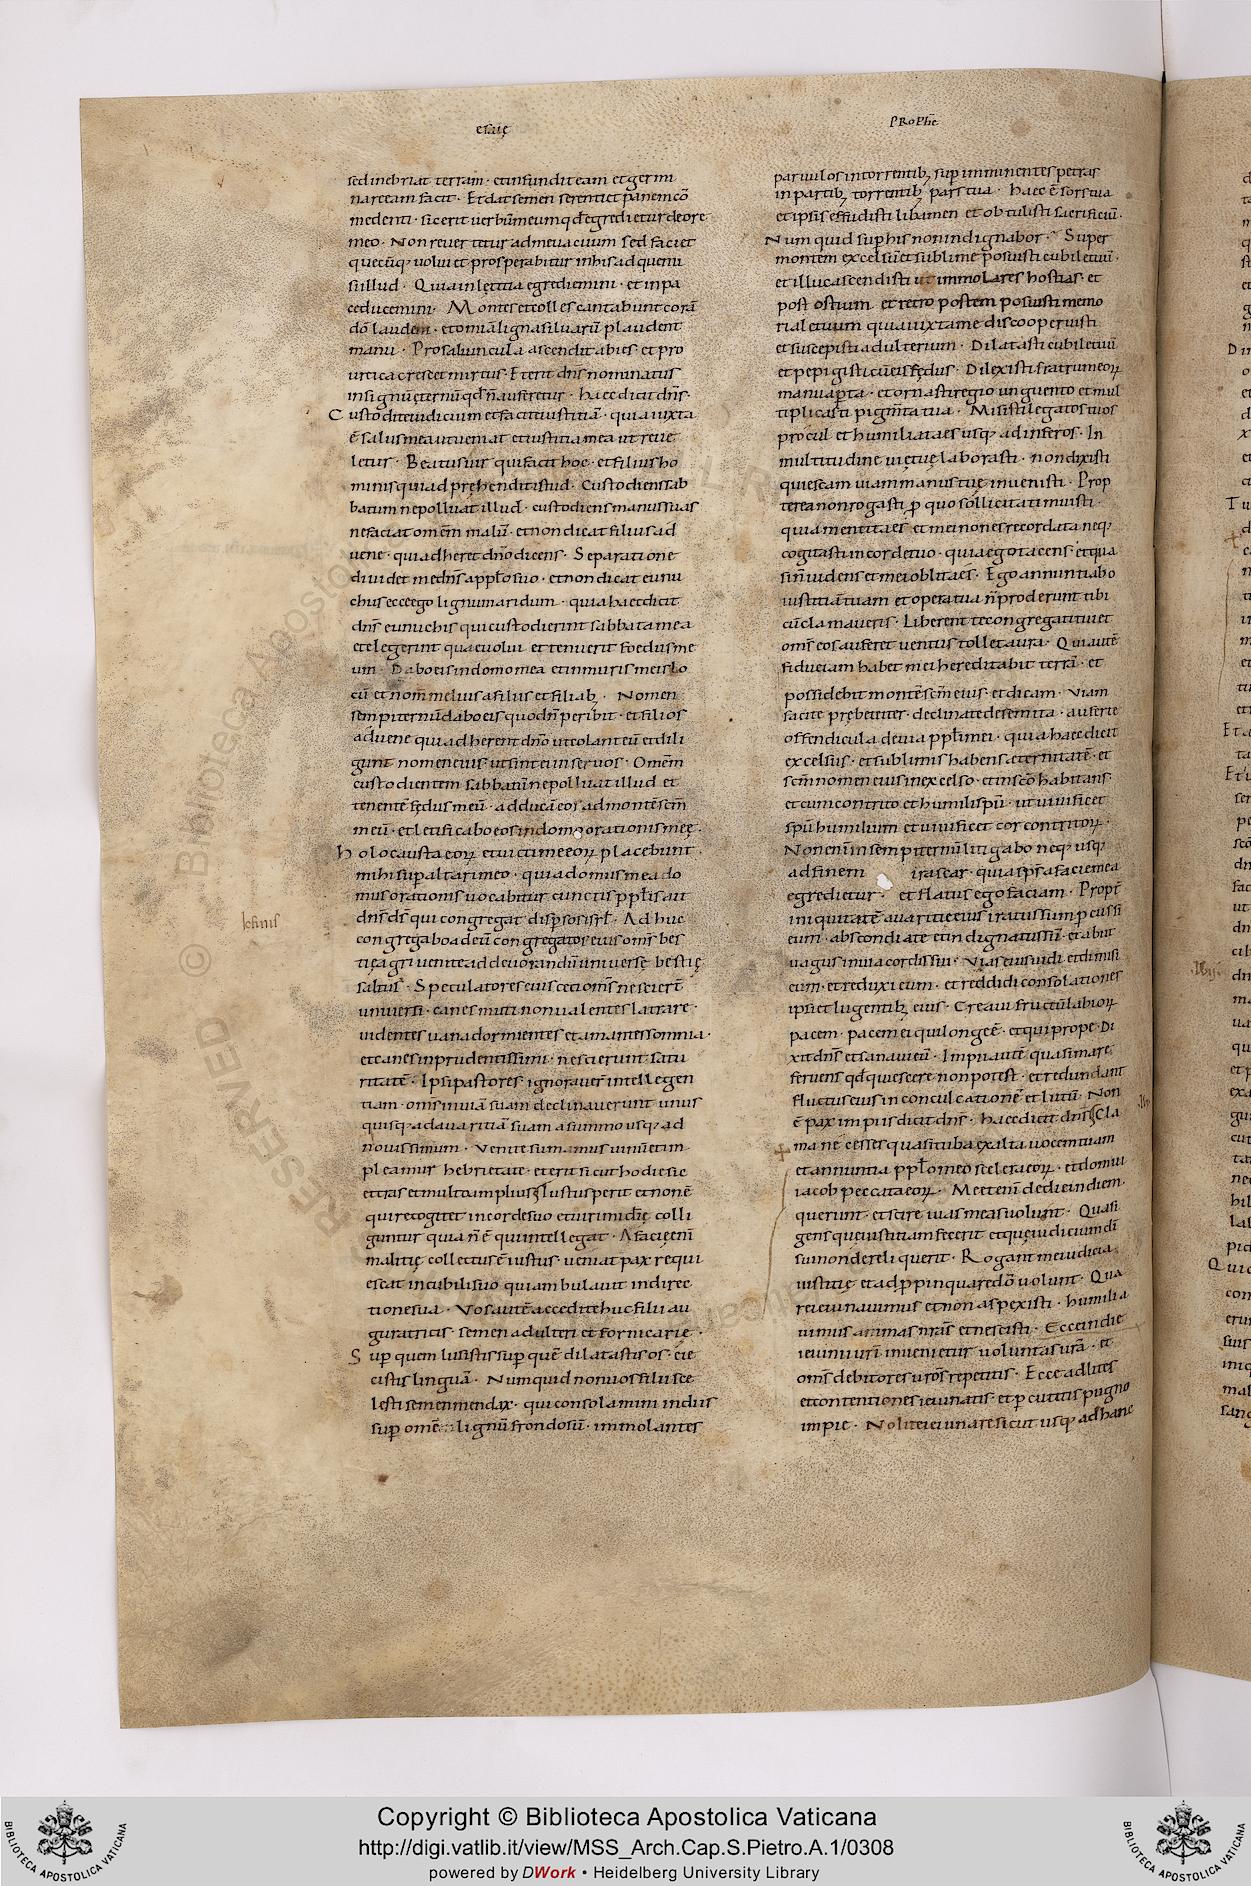 esaię
PROPHE
sed inebriat terram · et infundit eam et germi
nare eam facit · Et dat semen serenti et panem cō
medenti · sic erit uerbū meum qđ egredietur de ore
meo · Non reuertetur ad me uacuum sed faciet
quecūq; uolui et prosperabitur in his ad quę mi
si illud · Quia in lętitia egrediemini · et in pa
ce ducemini · Montes et colles cantabunt corā
uobis laudem · et omīa ligna siluarū plaudent
manu · Pro saliuncula ascendit abies et pro
urtica crescet mirtus · Et erit dn̄s nominatus
in signū ęternū qđ n̄ auferetur · haec dicit dn̄s ·
Custodite iudicium et facite iustitiā · quia iuxta
ē salus mea ut ueniat et iustitia mea ut reue
letur · Beatus uir qui facit hoc · et filius ho
minis qui adpręhendit istud · Custodiens sab
batum ne polluat illud · custodiens manus suas
ne faciat omēm malū · et non dicat filius ad
uene · qui adheret dn̄o dicens · Separatione
diuidet me dn̄s a pplo suo · et non dicat eunu
chus ecce ego lignum aridum · quia haec dicit
dn̄s eunuchis qui custodierint sabbata mea
et elegerint quae uolui et tenuerit foedus me
um · Dabo eis in domo mea et in muris meis lo
cū et nom̄ melius a filiis et filiab; · Nomen
sempiternū dabo eis quod n̄ peribit · et filios
aduene qui adherent dn̄o ut colant eū et dili
gunt nomen eius ut sint ei in seruos · Omēm
custodientem sabbatū ne polluat illud et
tenentē fędus meū · adducā eos ad montē scm̄
meū · et letificabo eos in domo orationis meę ·
holocausta eoꝝ et uictime eoꝝ placebunt
mihi sup altari meo · quia domus mea do
mus orationis uocabitur cunctis pplis ait
dn̄s ds̄ qui congregat disp̱sos isrl · Adhuc
congregabo ad eū congregatos eius om̄s bes
tię agri uenite ad deuorandū uniuersę bestię
saltus · Speculatores eius ceci om̄s nescierē
uniuersi · canes muti non ualentes latrare ·
uidentes uana dormientes et amantes somnia ·
et canes inprudentissimi · nescierunt satu
ritatē · Ipsi pastores ignorauer intellegen
tiam · om̄s in uiā suam declinauerunt unus
quisq; ad auaritiā suam a summo usq; ad
nouissimum · Venite sumamus uinū et im
pleamur hebrietate · et erit sicut hodie sic
et cras et multo amplius Iustus perit et non ē
qui recogitet in corde suo et uiri mīdię colli
guntur quia n̄ ē qui intellegat · A facię enī
malitię collectus ē iustus · ueniat pax requi
escat in cubili suo qui ambulauit in direc
tione sua · Vos autē accedite huc filii au
guratricis · semen adulteri et fornicarię ·
Sup quem lusistis sup quē dilatastis os · eie
cistis linguā · Numquid non uos filii sce
lesti semen mendax · qui consolamini in diis
sup omē lignū frondosū · immolantes
paruulos in torrentib; sup imminentes petras
in partib; torrentib; pars tua · haec ē sors tua
et ipsis effudisti libamen et obtulisti sacrificiū ·
Numquid sup his non indignabor · Super
montem excelsū et sublime posuisti cubile tuū ·
et illuc ascendisti ut immolares hostias · et
post ostium et retro postem posuisti memo
riale tuum quia iuxta me discooperuisti
et suscepisti adulterium · Dilatasti cubile tuū
et pepigisti cū eis fędus · Dilexisti stratum eoꝝ
manu ap̱ta · et ornasti regio unguento et mul
tiplicasti pigm̄ta tua · Misisti legatos tuos
procul et humiliata es usq; ad inferos · In
multitudine uię tuę laborasti · non dixisti
quiescam uiam manus tuę inuenisti · Prop
terea non rogasti p̱ quo sollicita timuisti ·
quia mentita es et mei non es recordata neq;
cogitasti in corde tuo · quia ego tacens · et qua
si n̄ uidens et mei oblita es · Ego annuntiabo
iustitiā tuam et opera tua n̄ proderunt tibi
cū clamaueris · Liberent te congregati tui et
om̄s eos auferet uentus tollet aura · Qui autē
fiduciam habet mei hereditabit terrā · et
possidebit montē scm̄ eius · et dicam · Viam
facite prębete iter · declinate de semita · auferte
offendicula de uia ppli mei · quia haec dicit
excelsus · et sublimis habens aeternitatē · et
scm̄ nomen eius in excelso · et in scō habitans ·
et cum contrito et humili spū · ut uiuificet
spm̄ humilium et uiuificet cor contritoꝝ ·
Non enī in sempiternū litigabo neq; usq;
ad finem irascar · quia sp̄s a facie mea
egredietur · et flatus ego faciam · Propt
iniquitatē auaritię eius iratus sum p̱cussi
eum · abscondi a te et indignatus sū · et abiit
uagus in uia cordis sui · Vias eius uidi et dimisi
eum · et reduxi eum · et reddidi consolationes
ipsi et lugentib; eius · Creaui fructū labioꝝ
pacem · pacem ei qui longe ē · et qui prope · Di
xit dn̄s et sanaui eū · Impii autē quasi mare
feruens qđ quiescere non potest · et redundant
fluctus eius in conculcationē et lutū · Non
ē pax impiis dicit dn̄s · haec dicit dn̄s Cla
ma ne cesses quasi tuba exalta uocem tuam
et annuntia pplo meo scelera eoꝝ · et domui
iacob peccata eoꝝ · Me etenī de die in diem
querunt · et scire uias meas uolunt · Quasi
gens quę iustitiam fecerit et quę iudicium dī
sui non dereliquerit · Rogant me iudicia
iustitię et adp̱pinquare dō uolunt · Qua
re ieiunauimus et non aspexisti · humilia
uimus animas nr̄as et nescisti · Ecce in die
ieiunii ur̄i inuenietur uoluntas ur̄a · et
om̄s debitores ur̄os repetitis · Ecce ad lites
et contentiones ieiunatis · et p̱cutitis pugno
impie · Nolite ieiunare sicut usq; ad hanc
Copyright © Biblioteca Apostolica Vaticana
http://digi.vatlib.it/view/MSS_Arch.Cap.S.Pietro.A.1/0308
powered by DWork • Heidelberg University Library
BIBLIOTECA APOSTOLICA VATICANA
BIBLIOTECA APOSTOLICA VATICANA